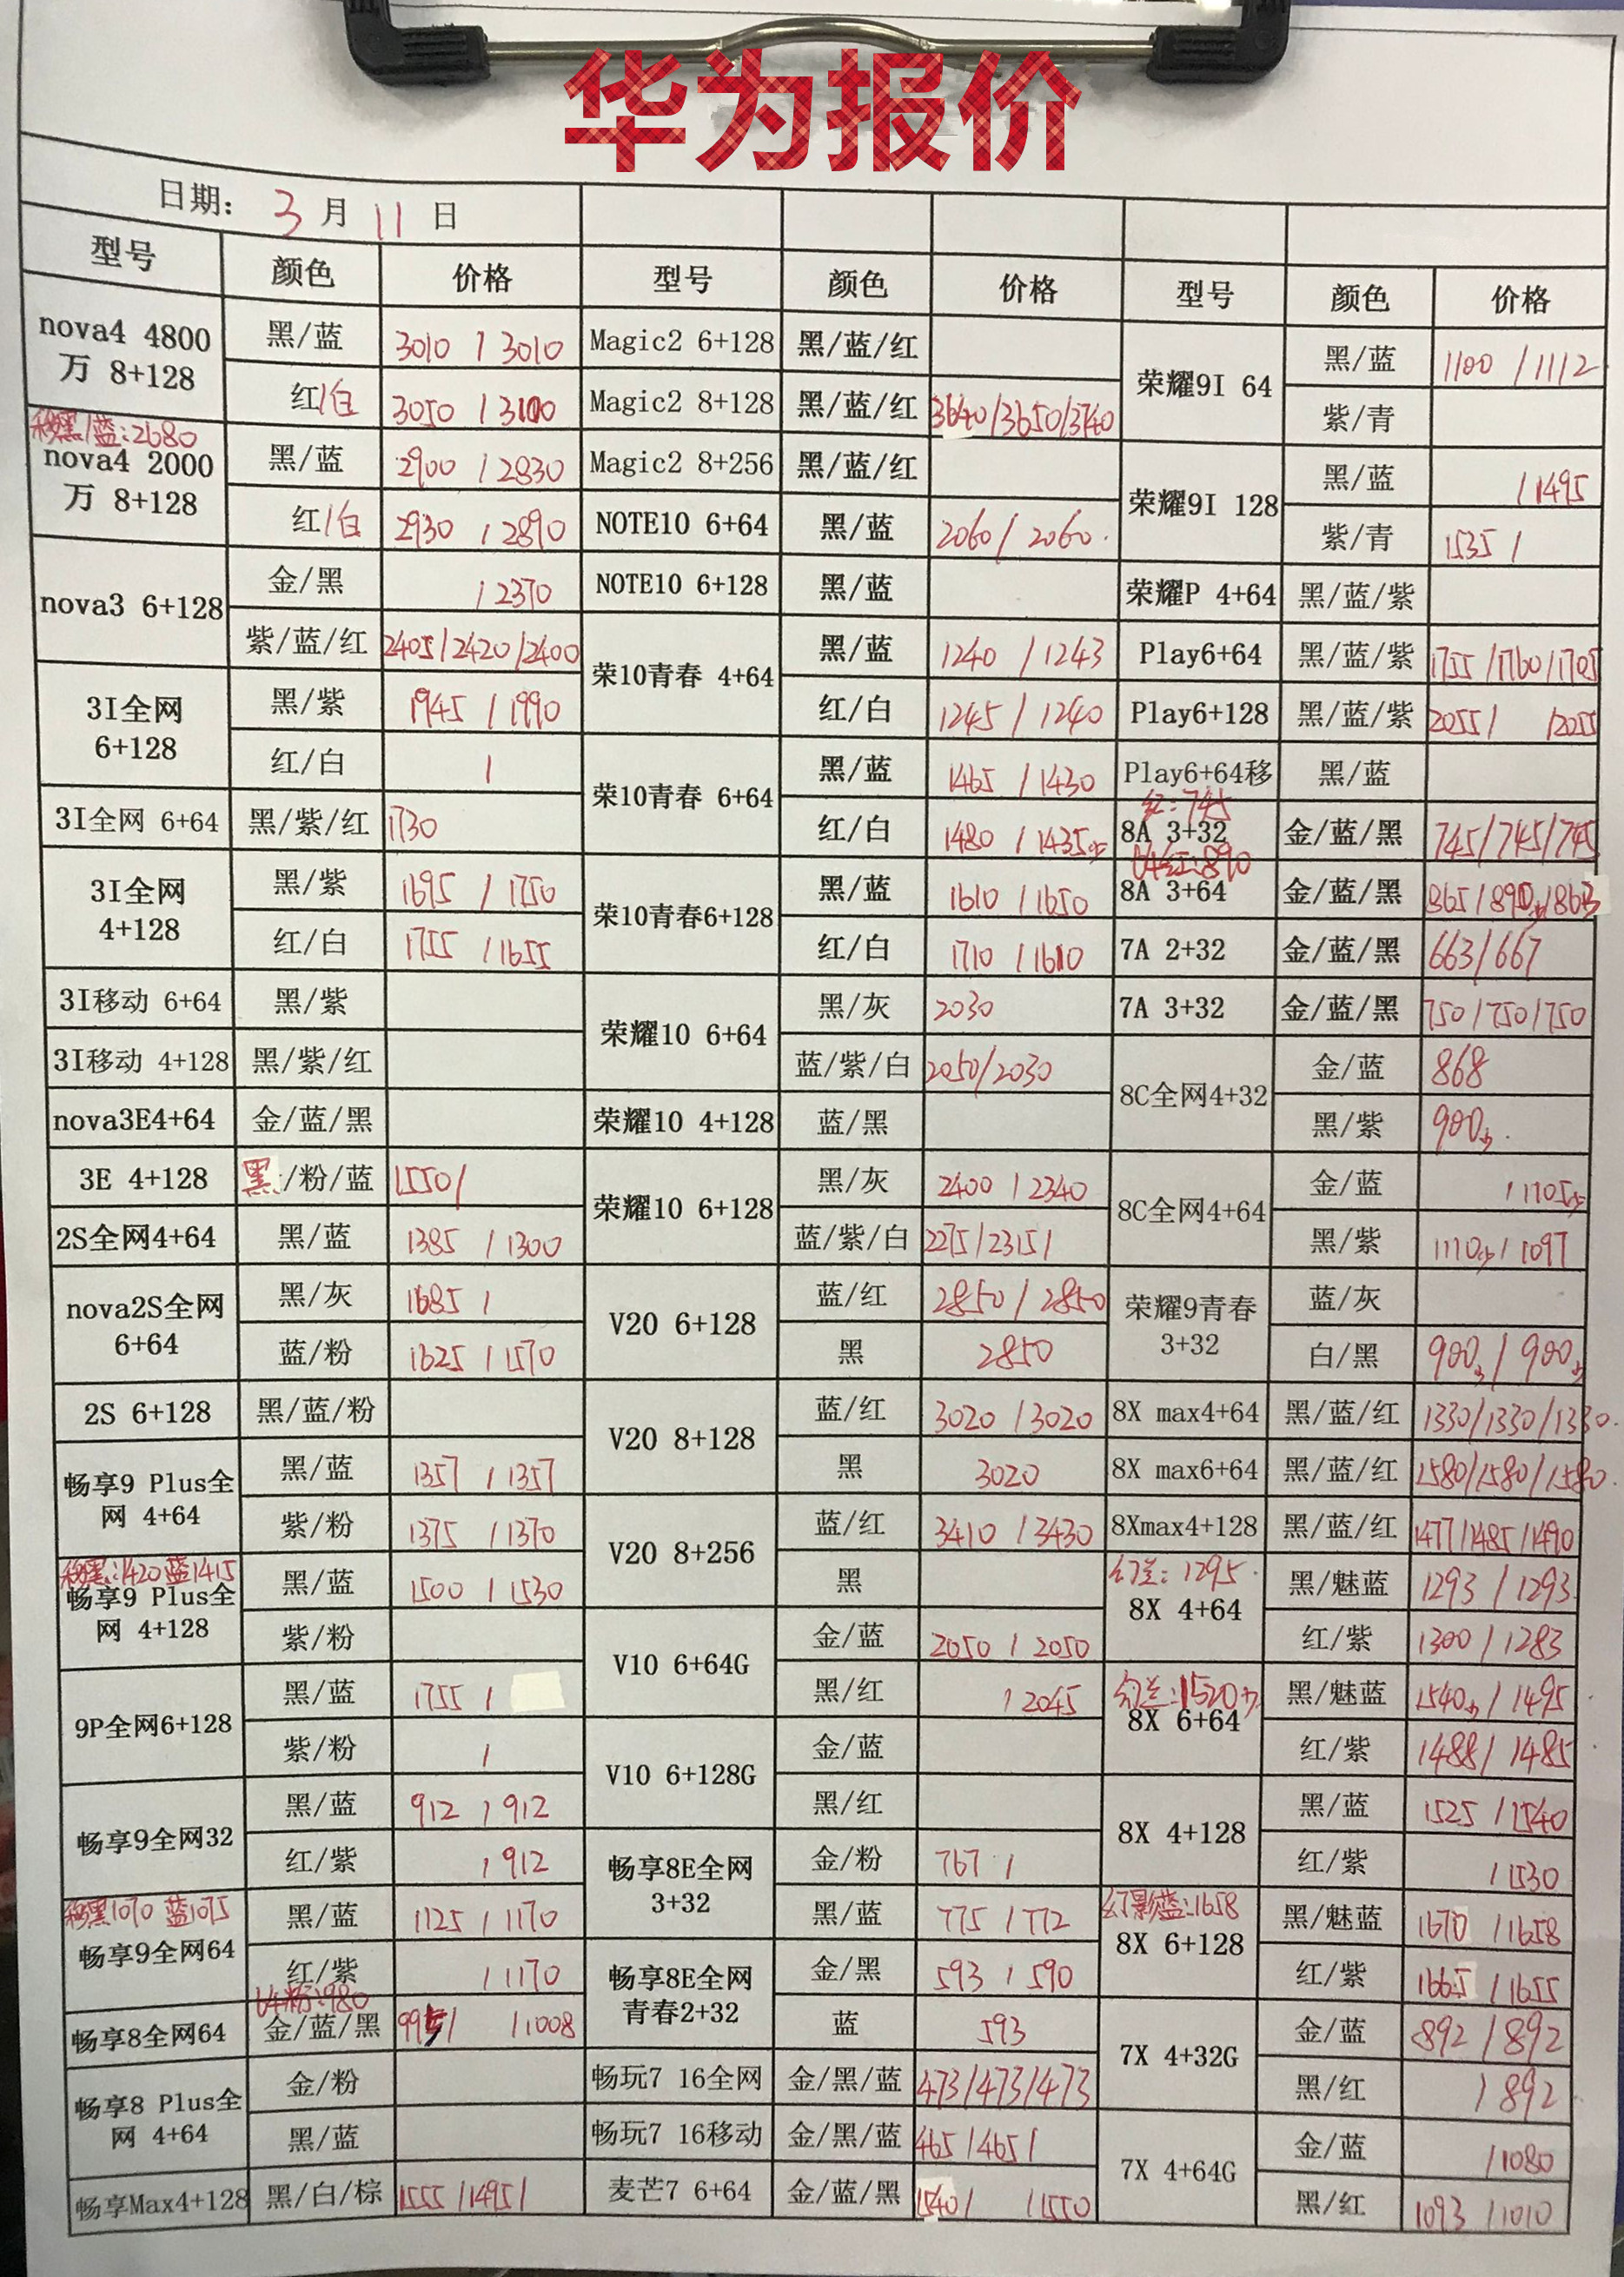 华为报价
日期: 3 月 11 日
型号 颜色 价格 型号 颜色 价格 型号 颜色 价格
nova4 4800万 8+128 黑/蓝 3010 / 3010
红/白 3050 / 3100
移黑/蓝:2680
nova4 2000万 8+128 黑/蓝 2900 / 2830
红/白 2930 / 2890
nova3 6+128 金/黑 / 2370
紫/蓝/红 2405/2420/2400
3I全网 6+128 黑/紫 1945 / 1990
红/白 /
3I全网 6+64 黑/紫/红 1730
3I全网 4+128 黑/紫 1695 / 1750
红/白 1755 / 1655
3I移动 6+64 黑/紫
3I移动 4+128 黑/紫/红
nova3E4+64 金/蓝/黑
3E 4+128 黑/粉/蓝 1550/
2S全网4+64 黑/蓝 1385 / 1300
nova2S全网 6+64 黑/灰 1685 /
蓝/粉 1625 / 1570
2S 6+128 黑/蓝/粉
畅享9 Plus全网 4+64 黑/蓝 1357 / 1357
紫/粉 1375 / 1370
移黑:1420 蓝1415
畅享9 Plus全网 4+128 黑/蓝 1500 / 1530
紫/粉
9P全网6+128 黑/蓝 1755 /
紫/粉 /
畅享9全网32 黑/蓝 912 / 912
红/紫 / 912
移黑1070 蓝1075
畅享9全网64 黑/蓝 1125 / 1170
红/紫 / 1170
64粉:980
畅享8全网64 金/蓝/黑 995/ /1008
畅享8 Plus全网 4+64 金/粉
黑/蓝
畅享Max4+128 黑/白/棕 1555/1495/
Magic2 6+128 黑/蓝/红
Magic2 8+128 黑/蓝/红 3640/3650/3740
Magic2 8+256 黑/蓝/红
NOTE10 6+64 黑/蓝 2060/ 2060.
NOTE10 6+128 黑/蓝
荣10青春 4+64 黑/蓝 1240 / 1243
红/白 1245 / 1240
荣10青春 6+64 黑/蓝 1465 / 1430
红/白 1480 / 1435少
荣10青春6+128 黑/蓝 1610 / 1650
红/白 1710 / 1610
荣耀10 6+64 黑/灰 2030
蓝/紫/白 2050/2030
荣耀10 4+128 蓝/黑
荣耀10 6+128 黑/灰 2400 / 2340
蓝/紫/白 2275/2315/
V20 6+128 蓝/红 2850 / 2850
黑 2850
V20 8+128 蓝/红 3020 / 3020
黑 3020
V20 8+256 蓝/红 3410 / 3430
黑
V10 6+64G 金/蓝 2050 / 2050
黑/红 / 2045
V10 6+128G 金/蓝
黑/红
畅享8E全网 3+32 金/粉 767 /
黑/蓝 775 / 772
畅享8E全网青春2+32 金/黑 593 / 590
蓝 593
畅玩7 16全网 金/黑/蓝 473/473/473
畅玩7 16移动 金/黑/蓝 465/465/
麦芒7 6+64 金/蓝/黑 1540/ /1550
荣耀9I 64 黑/蓝 1100 / 1112
紫/青
荣耀9I 128 黑/蓝 / 1495
紫/青 1535 /
荣耀P 4+64 黑/蓝/紫
Play6+64 黑/蓝/紫 1755/1760/1705
Play6+128 黑/蓝/紫 2055/ /2055
Play6+64移 黑/蓝
红:745
8A 3+32 金/蓝/黑 745/745/745
64红:890
8A 3+64 金/蓝/黑 865/890少/863
7A 2+32 金/蓝/黑 663/667
7A 3+32 金/蓝/黑 750/750/750
8C全网4+32 金/蓝 868
黑/紫 900少.
8C全网4+64 金/蓝 / 1105少
黑/紫 1110少/ 1097
荣耀9青春 3+32 蓝/灰
白/黑 900少/ 900少
8X max4+64 黑/蓝/红 1330/1330/1330.
8X max6+64 黑/蓝/红 1580/1580/1580.
8Xmax4+128 黑/蓝/红 1477/1485/1490
幻兰:1295.
8X 4+64 黑/魅蓝 1293 / 1293
红/紫 1300 / 1283
幻兰:1520少
8X 6+64 黑/魅蓝 1540少/ 1495
红/紫 1488/ 1485
8X 4+128 黑/蓝 1525 / 1540
红/紫 / 1530
幻影蓝:1658
8X 6+128 黑/魅蓝 1670 / 1658
红/紫 1665 / 1655
7X 4+32G 金/蓝 892 / 892
黑/红 / 892
7X 4+64G 金/蓝 / 1080
黑/红 1093 / 1010